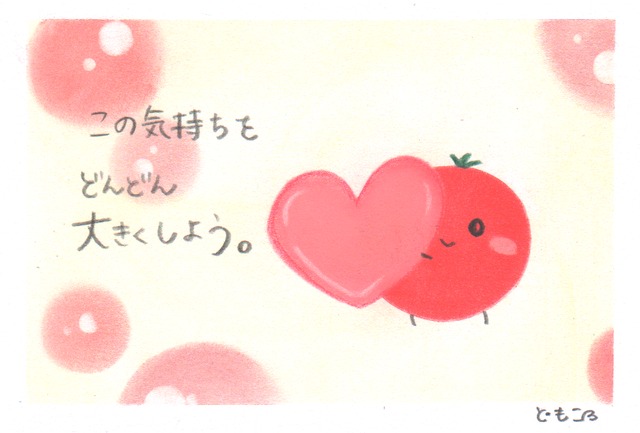 この気持ちを
どんどん
大きくしよう。
ともころ